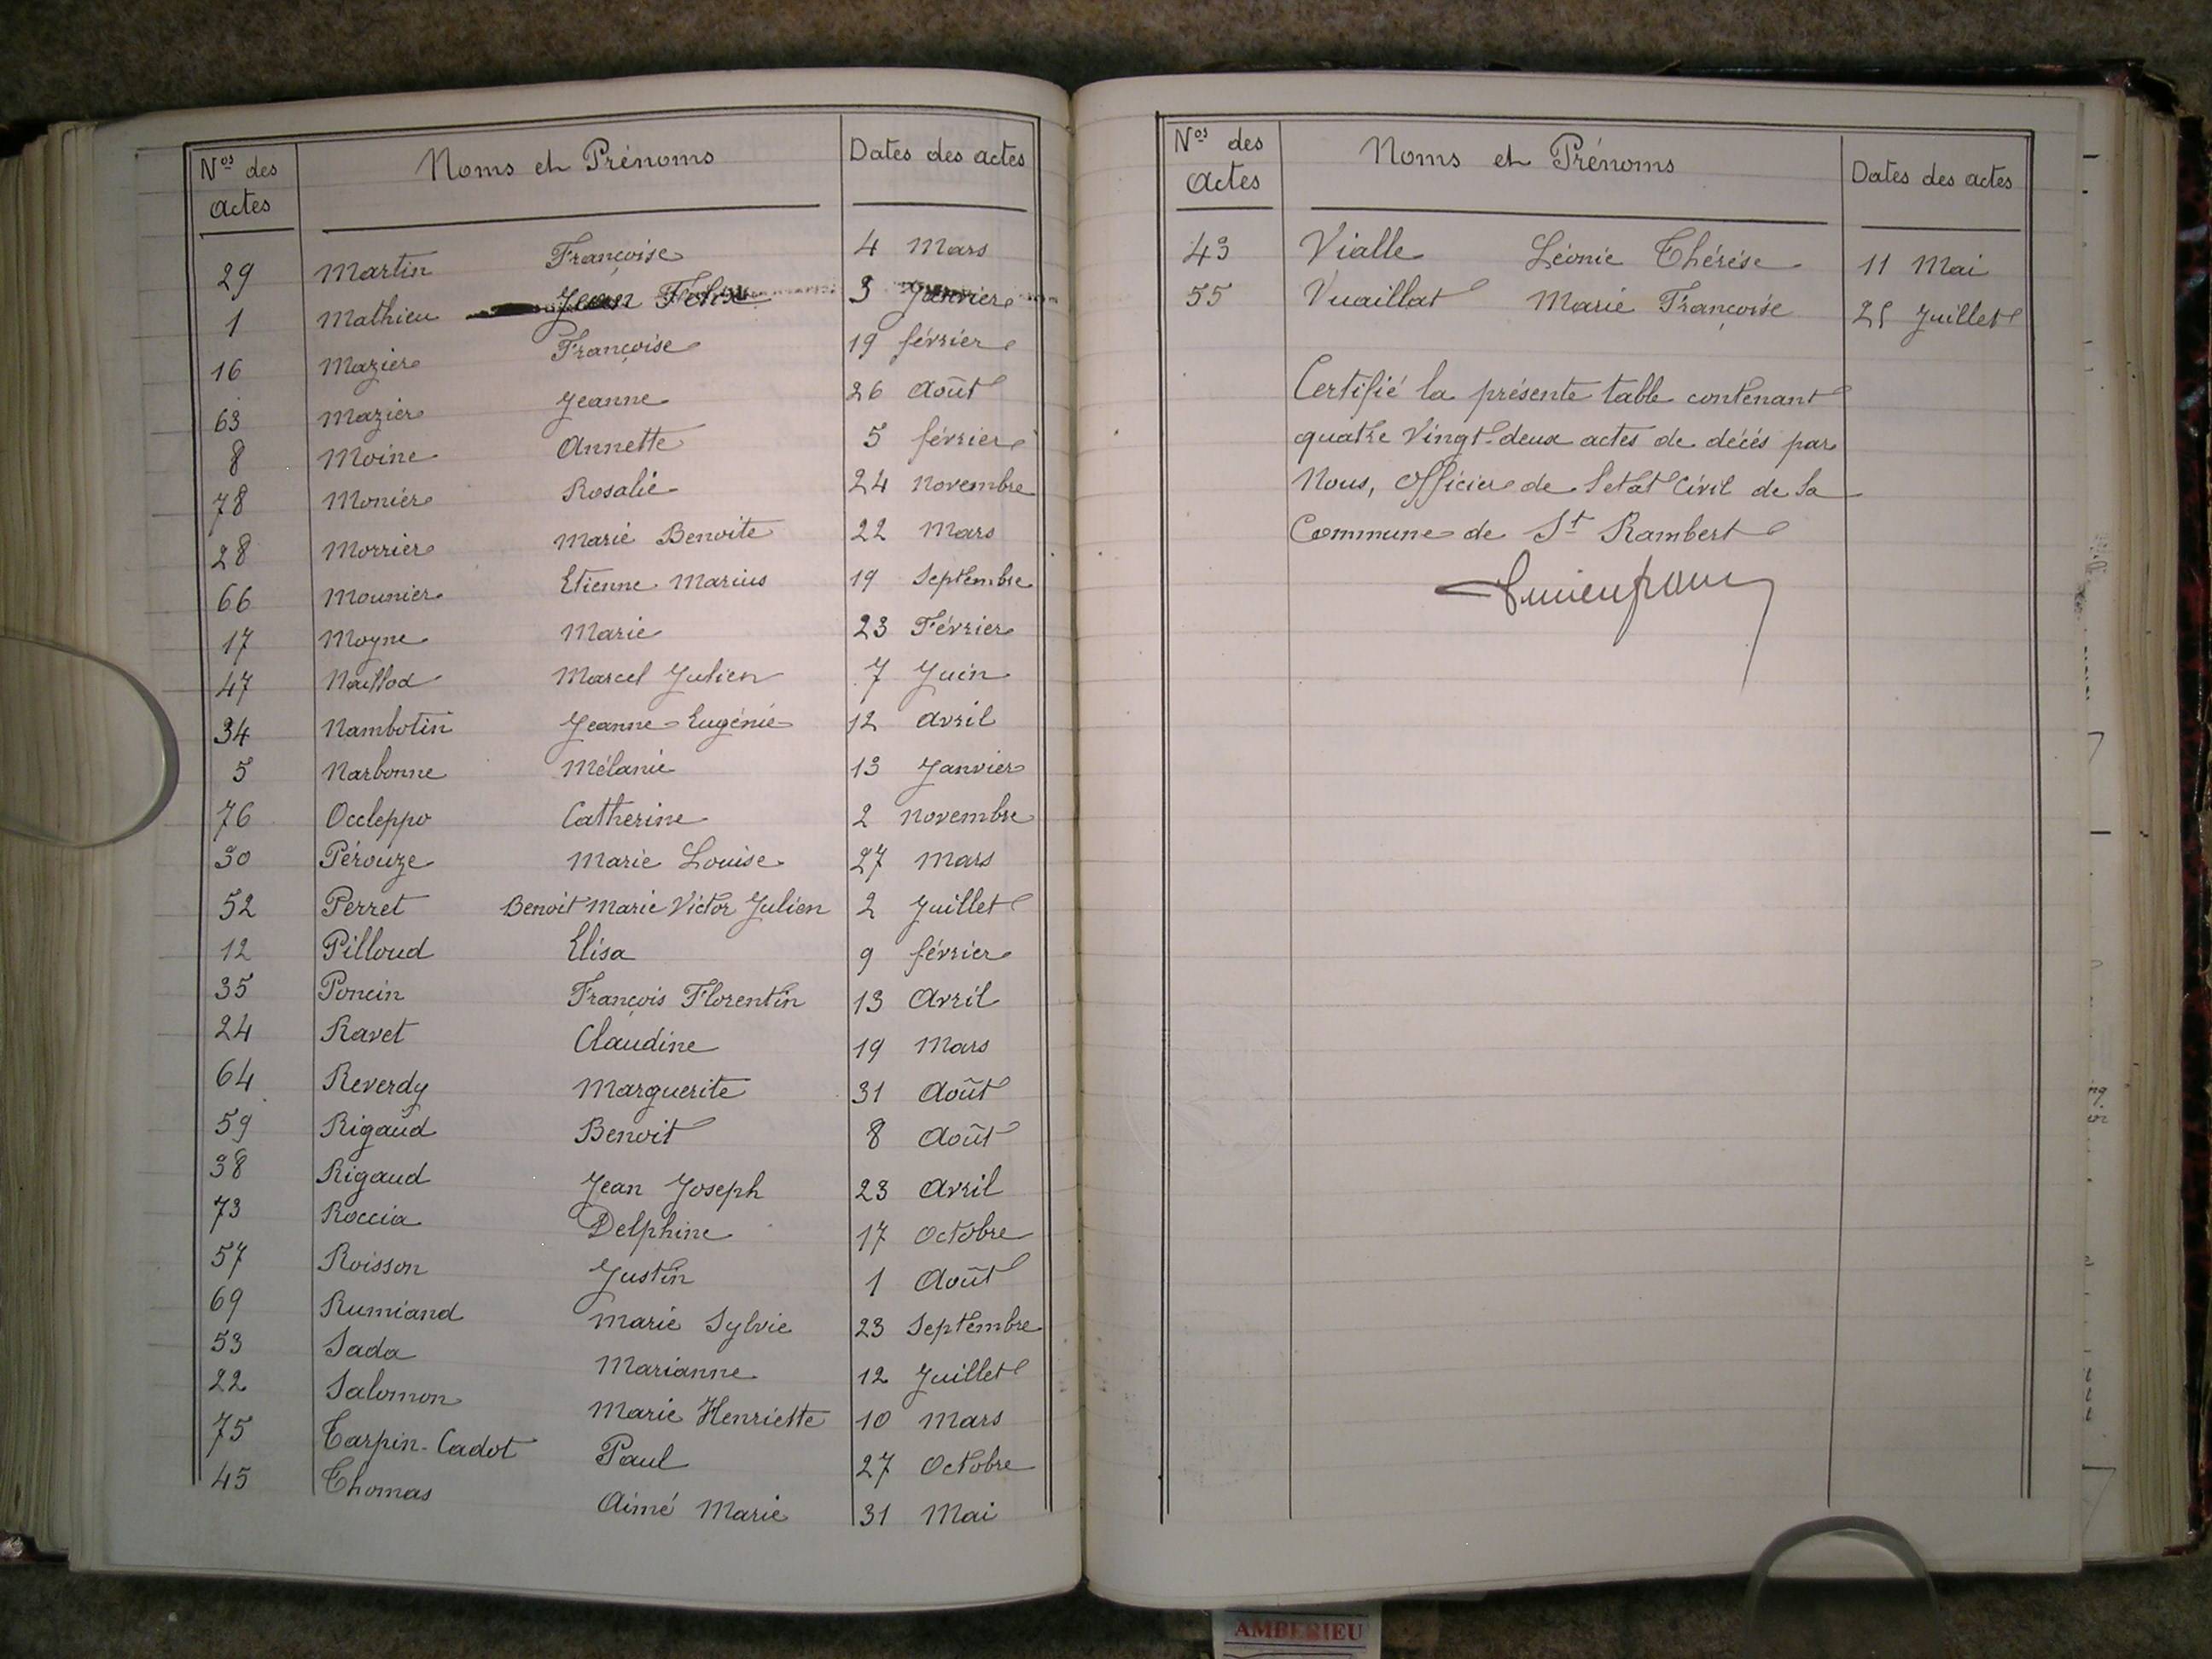 Nos des actes Noms et Prénoms Dates des actes
29 Martin Françoise 4 Mars
1 Mathieu Jean 3 Janvier
16 Mazier Françoise 19 février
63 Mazier Jeanne 26 Août
8 Moine Annette 5 février
78 Monier Rosalie 24 novembre
28 Morrier Marie Benoite 22 Mars
66 Mounier Etienne Marius 19 Septembre
17 Moyne Marie 23 Février
47 Marcel Julien 7 Juin
34 Nambotin Jeanne-Eugénie 12 avril
5 Narbonne Mélanie 13 Janvier
76 Occleppo Catherine 2 novembre
30 Pérouze Marie Louise 27 mars
52 Perret Benoit Marie Victor Julien 2 Juillet
12 Pilloud Elisa 9 février
35 Poncin François Florentin 13 Avril
24 Ravet Claudine 19 Mars
64 Reverdy Marguerite 31 Août
59 Rigaud Benoit 8 Août
38 Rigaud Jean Joseph 23 Avril
73 Roccia Delphine 17 Octobre
57 Roisson Justin 1 Août
69 Rumiand Marie Sylvie 23 Septembre
53 Sada Marianne 12 Juillet
22 Salomon Marie Henriette 10 Mars
75 Tarpin-Cadot Paul 27 Octobre
45 Thomas Aimé Marie 31 Mai
Nos des actes Noms et Prénoms Dates des actes
43 Vialle Léonie Thérèse 11 Mai
55 Vuaillat Marie Françoise 25 Juillet
Certifié la présente table contenant
quatre Vingt-deux actes de décés par
Nous, Officier de l'etat Civil de la
Commune de St Rambert
AMBERIEU